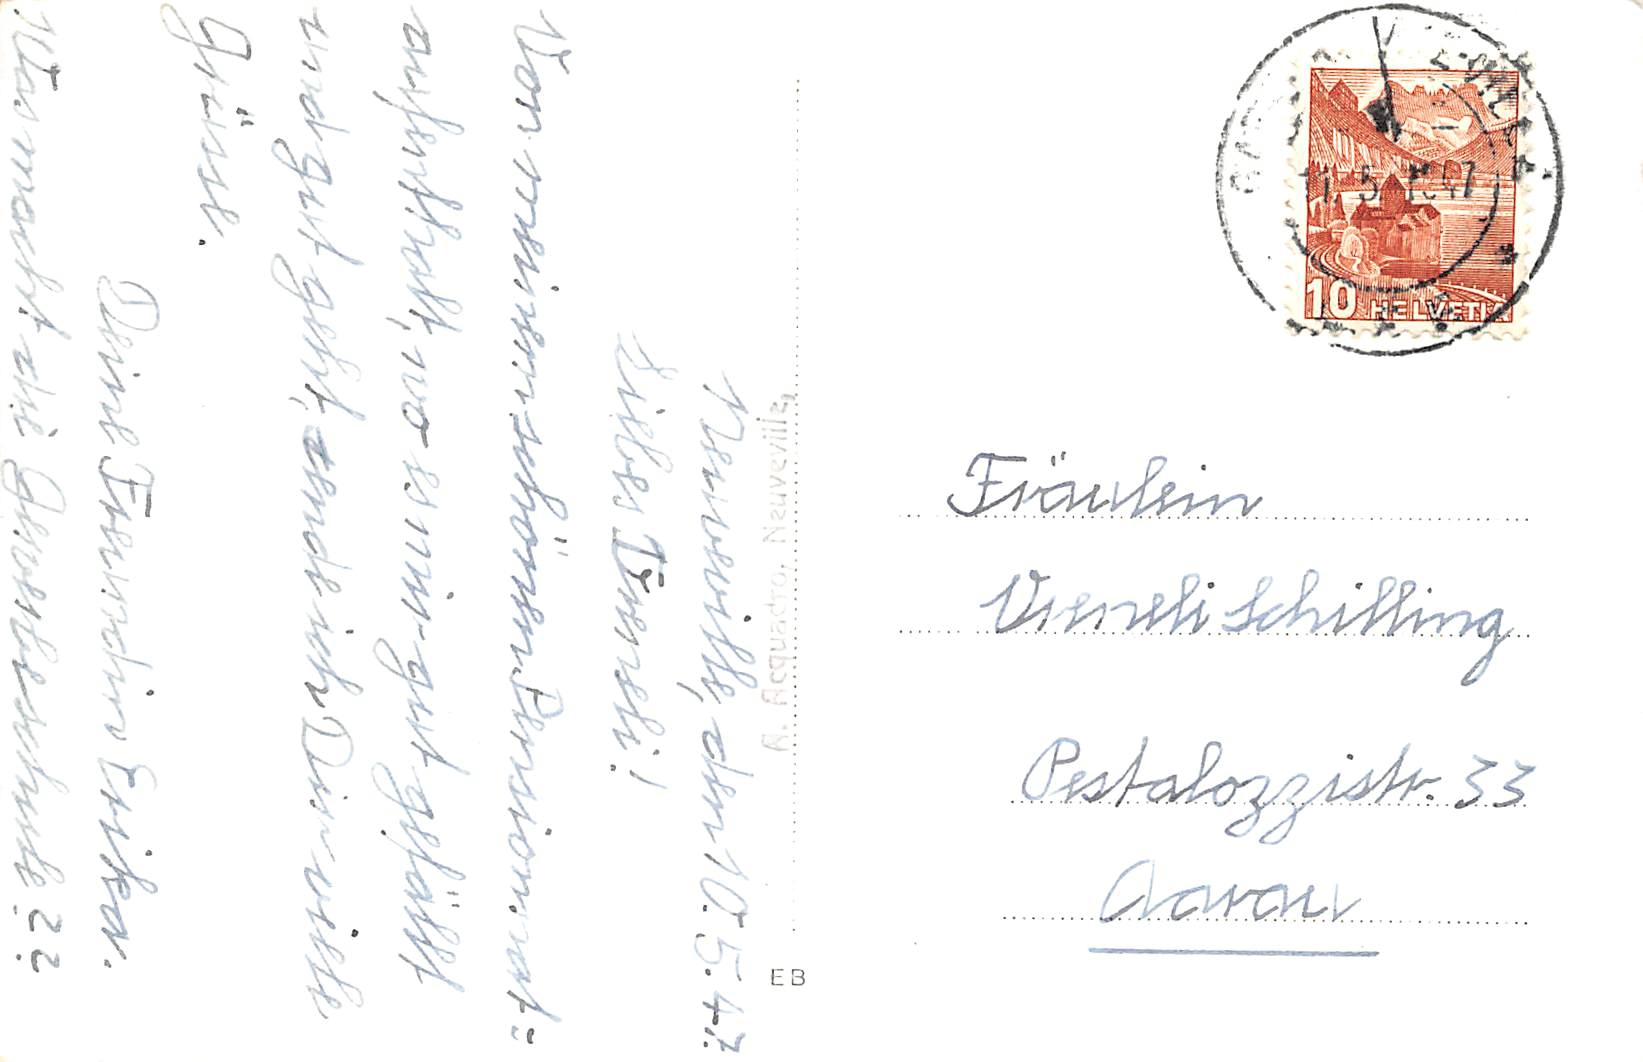 Neuveville, den 10. 5. 47.
Liebes Vreneli!
Von meinem schönen Pensionnat=
aufenthalt, wo es mir gut gefällt
und gut geht, sende ich Dir viele
Grüsse.
Deine Freundin Erika.
Was macht die Gewerbeschule??
A. Acquadro, Neuveville
EB
10 HELVETIA
Fräulein
Vreneli Schilling
Pestalozzistr. 33
Aarau